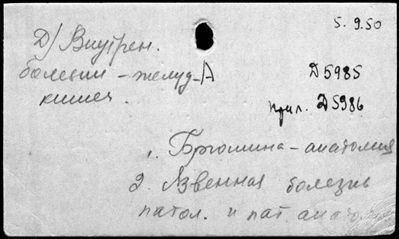 5.9.50
Д) Внутрен.
болезни - желуд- А
кишеч.
D5985
прил. D5986
1. Брюшина - анатомия
2. Язвенная болезнь
патол. и пат. анатом